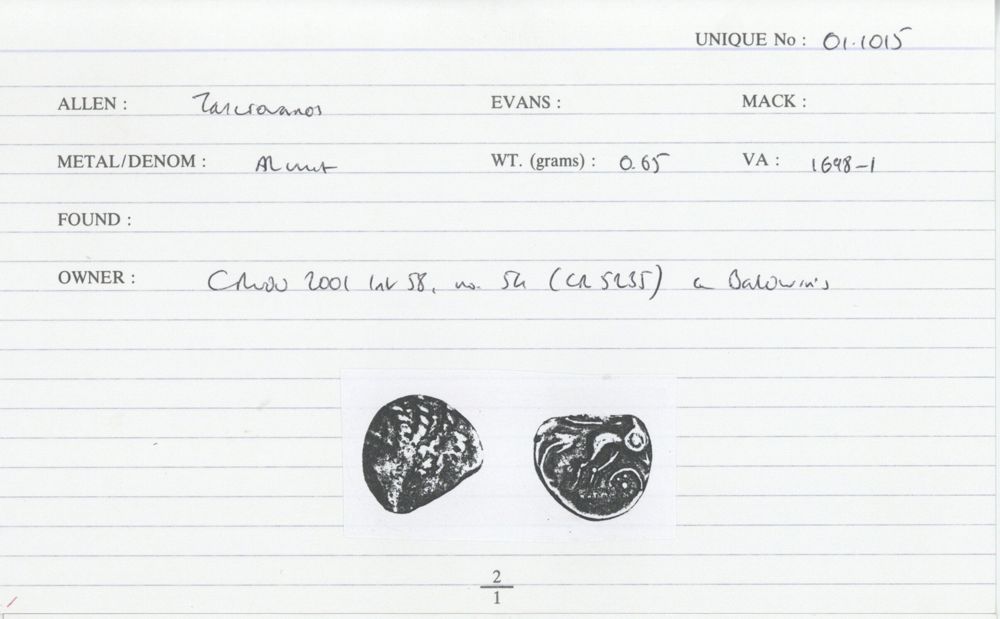 UNIQUE No : 01.1015
ALLEN : Tasciovanos EVANS : MACK :
METAL/DENOM : AR unit WT. (grams) : 0.65 VA : 1698-1
FOUND :
OWNER : 2001 58, no. 54 (CR 5235) Baldwin's
2
1